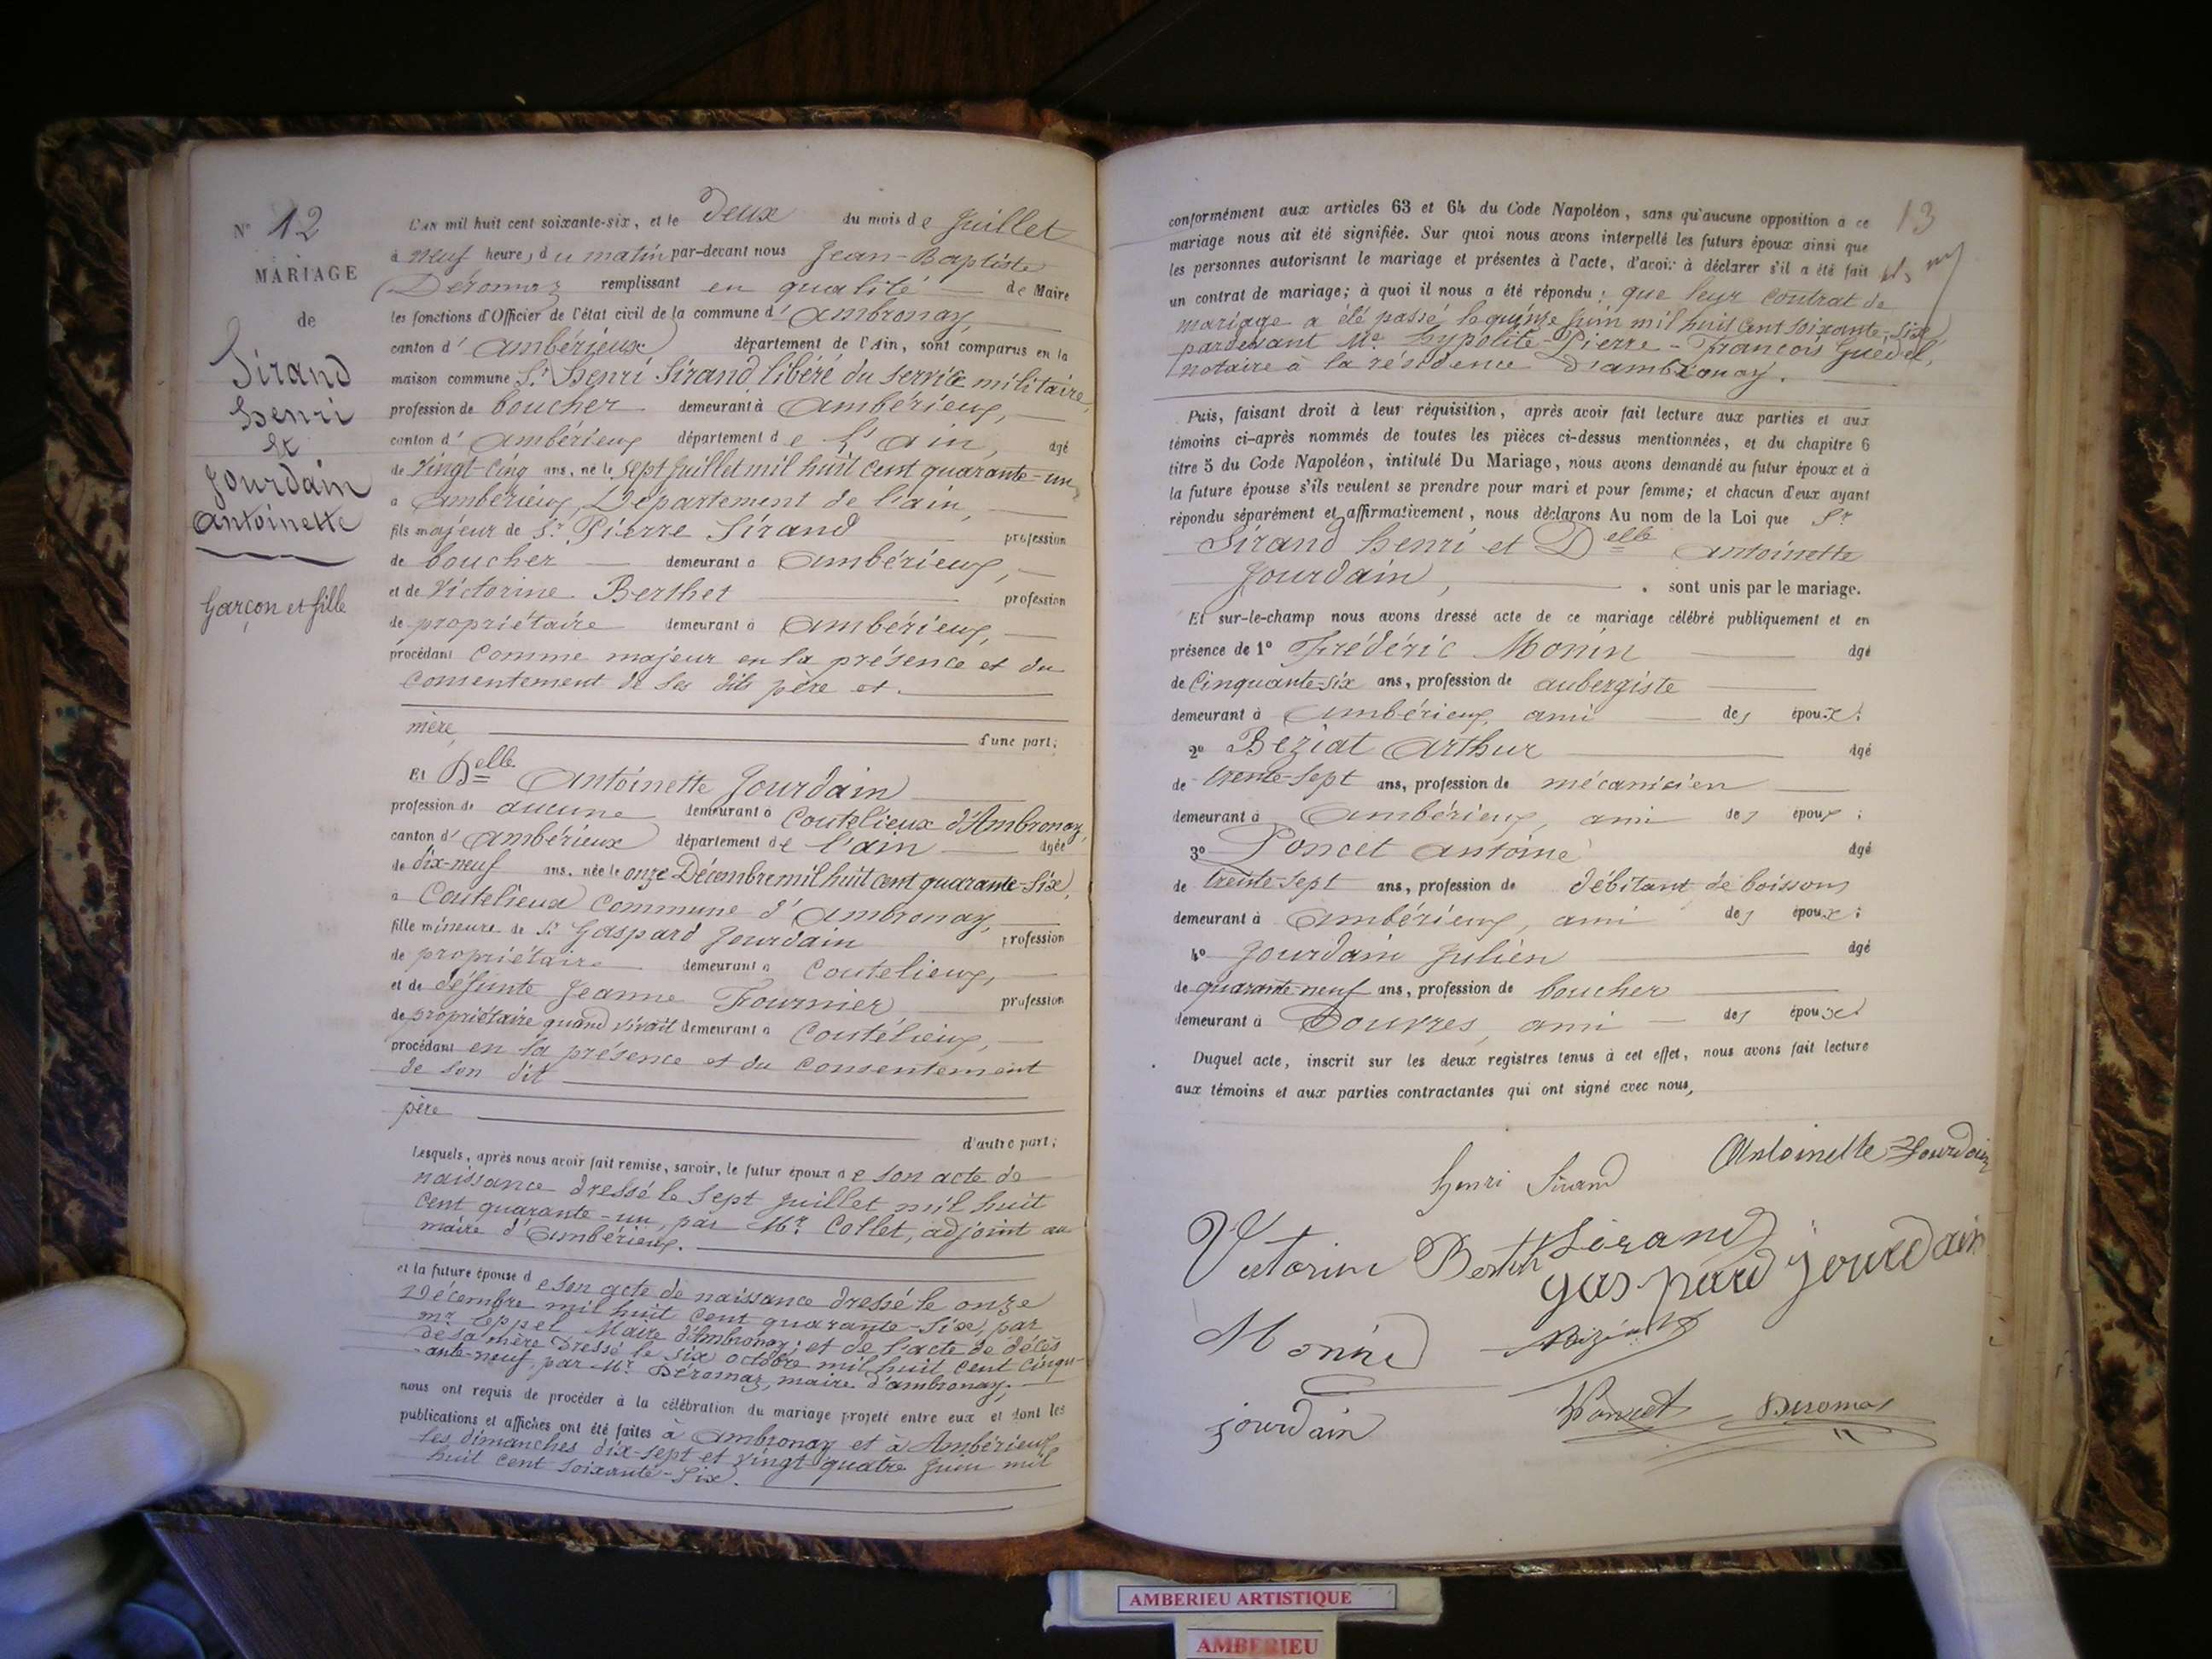 N° 12
MARIAGE
de
Sirand
henri
Et
Jourdain
Antoinette
Garçon et fille
L'an mil huit cent soixante-six, et le Deux du mois de Juillet
à neuf heures du matin par-devant nous Jean-Baptiste
Déromaz remplissant en qualité de Maire
les fonctions d'Officier de l'état civil de la commune d'Ambronay,
canton d'Ambérieux département de l'Ain, sont comparus en la
maison commune Sr henri Sirand libéré du service militaire,
profession de boucher demeurant à Ambérieux,
canton d'Ambérieux département de l'ain, âgé
de vingt-cinq ans, né le sept juillet mil huit cent quarante-un,
à Ambérieux, Département de l'ain,
fils majeur de Sr Pierre Sirand profession
de boucher demeurant à Ambérieux,
et de Victorine Berthet profession
de propriétaire demeurant à Ambérieux,
procédant comme majeur en la présence et du
consentement de ses dits père et
mère, d'une part;
Et Delle Antoinette Jourdain
profession de aucune demeurant à Coutelieux d'Ambronay,
canton d'Ambérieux département de l'ain âgée
de dix-neuf ans, née le onze Décembre mil huit cent quarante-six,
à Coutelieux commune d'Ambronay,
fille mineure de Sr Gaspard Jourdain profession
de propriétaire demeurant à Coutelieux,
et de défunte Jeanne Fournier profession
de propriétaire quand vivait demeurant à Coutélieux,
procédant en la présence et du consentement
de son dit
père
d'autre part;
Lesquels, après nous avoir fait remise, savoir, le futur époux de son acte de
naissance dressé le sept juillet mil huit
cent quarante-un, par Mr Collet, adjoint au
maire d'Ambérieux.
et la future épouse de son acte de naissance dressé le onze
Décembre mil huit cent quarante-six, par
mr Maire d'Ambronay; et de l'acte de décès
de sa mère dressé le six octobre mil huit cent cinqu-
-ante-neuf, par Mr Déromaz, maire d'ambronay.
nous ont requis de procéder à la célébration du mariage projeté entre eux et dont les
publications et affiches ont été faites à Ambronay et à Ambérieux
les dimanches dix-sept et vingt-quatre Juin mil
huit cent soixante-six.
13
conformément aux articles 63 et 64 du Code Napoléon, sans qu'aucune opposition a ce
mariage nous ait été signifiée. Sur quoi nous avons interpellé les futurs époux ainsi que
les personnes autorisant le mariage et présentes à l'acte, d'avoir à déclarer s'il a été fait
un contrat de mariage; à quoi il nous a été répondu: que leur contrat de
mariage a été passé le quinze Juin mil huit cent soixante-six
pardevant Me hypolite-Pierre-François Guedel,
notaire à la résidence d'ambronay.
Puis, faisant droit à leur réquisition, après avoir fait lecture aux parties et aux
témoins ci-après nommés de toutes les pièces ci-dessus mentionnées, et du chapitre 6
titre 5 du Code Napoléon, intitulé Du Mariage, nous avons demandé au futur époux et à
la future épouse s'ils veulent se prendre pour mari et pour femme; et chacun d'eux ayant
répondu séparément et affirmativement, nous déclarons Au nom de la Loi que Sr
Sirand henri et Delle Antoinette
Jourdain, sont unis par le mariage.
Et sur-le-champ nous avons dressé acte de ce mariage célébré publiquement et en
présence de 1° Frédéric Monin âgé
de Cinquante-six ans, profession de aubergiste
demeurant à Ambérieux, ami des époux;
2° Beziat Arthur âgé
de trente-sept ans, profession de mécanicien
demeurant à Ambérieux, ami des époux;
3° Poncet Antoine âgé
de trente-sept ans, profession de débitant de boissons
demeurant à Ambérieux, ami des époux;
4° Jourdain Julien âgé
de quarante-neuf ans, profession de boucher
demeurant à Douvres, ami des époux.
Duquel acte, inscrit sur les deux registres tenus à cet effet, nous avons fait lecture
aux témoins et aux parties contractantes qui ont signé avec nous,
henri Sirand Antoinette Jourdain
Victorine Berthet Sirand
gaspard jourdain
Monin Béziat
jourdain Poncet Déromaz
AMBERIEU ARTISTIQUE
AMBERIEU